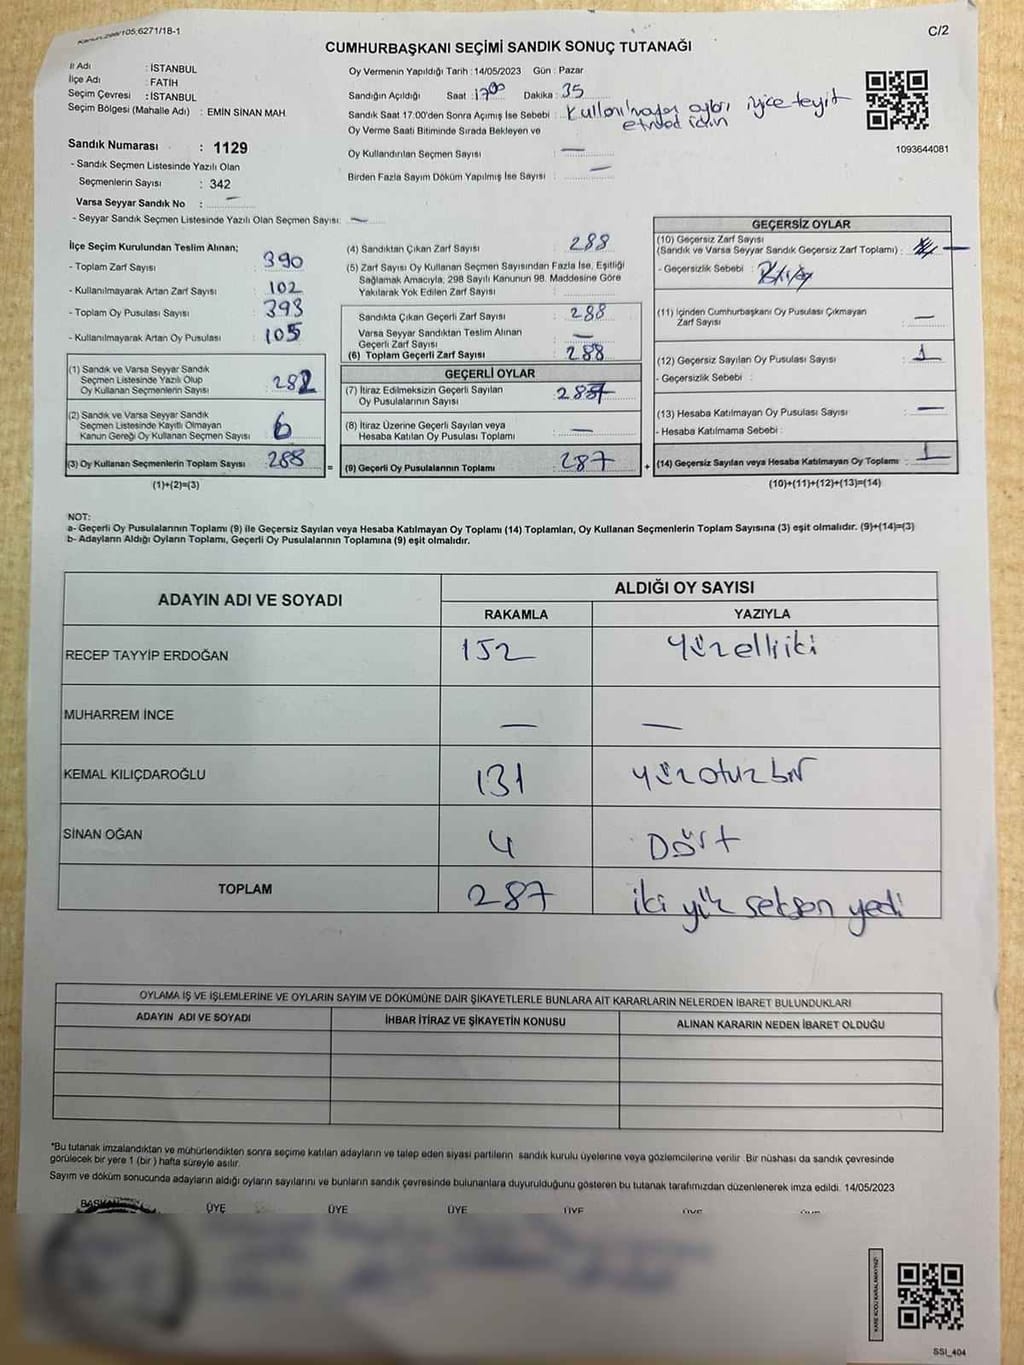 Kanun.298/105;6271/18-1
C/2
CUMHURBAŞKANI SEÇİMİ SANDIK SONUÇ TUTANAĞI
İl Adı : İSTANBUL
İlçe Adı : FATİH
Seçim Çevresi : İSTANBUL
Seçim Bölgesi (Mahalle Adı) : EMİN SİNAN MAH
Sandık Numarası : 1129
- Sandık Seçmen Listesinde Yazılı Olan
Seçmenlerin Sayısı : 342
Varsa Seyyar Sandık No : —
- Seyyar Sandık Seçmen Listesinde Yazılı Olan Seçmen Sayısı: —
Oy Vermenin Yapıldığı Tarih : 14/05/2023 Gün : Pazar
Sandığın Açıldığı Saat : 17:00 Dakika : 35
Sandık Saat 17:00'den Sonra Açımış İse Sebebi : iyice teyit
Oy Verme Saati Bitiminde Sırada Bekleyen ve
Oy Kullandırılan Seçmen Sayısı : —
Birden Fazla Sayım Döküm Yapılmış İse Sayısı : —
1093644081
İlçe Seçim Kurulundan Teslim Alınan;
- Toplam Zarf Sayısı : 390
- Kullanılmayarak Artan Zarf Sayısı : 102
- Toplam Oy Pusulası Sayısı : 393
- Kullanılmayarak Artan Oy Pusulası : 105
(1) Sandık ve Varsa Seyyar Sandık
Seçmen Listesinde Yazılı Olup
Oy Kullanan Seçmenlerin Sayısı : 282
(2) Sandık ve Varsa Seyyar Sandık
Seçmen Listesinde Kayıtlı Olmayan
Kanun Gereği Oy Kullanan Seçmen Sayısı : 6
(3) Oy Kullanan Seçmenlerin Toplam Sayısı : 288
(1)+(2)=(3)
(4) Sandıktan Çıkan Zarf Sayısı : 288
(5) Zarf Sayısı Oy Kullanan Seçmen Sayısından Fazla İse, Eşitliği
Sağlamak Amacıyla; 298 Sayılı Kanunun 98. Maddesine Göre
Yakılarak Yok Edilen Zarf Sayısı :
Sandıkta Çıkan Geçerli Zarf Sayısı : 288
Varsa Seyyar Sandıktan Teslim Alınan
Geçerli Zarf Sayısı : —
(6) Toplam Geçerli Zarf Sayısı : 288
GEÇERLİ OYLAR
(7) İtiraz Edilmeksizin Geçerli Sayılan
Oy Pusulalarının Sayısı : 287
(8) İtiraz Üzerine Geçerli Sayılan veya
Hesaba Katılan Oy Pusulası Toplamı : —
= (9) Geçerli Oy Pusulalarının Toplamı : 287 +
GEÇERSİZ OYLAR
(10) Geçersiz Zarf Sayısı
(Sandık ve Varsa Seyyar Sandık Geçersiz Zarf Toplamı) : —
- Geçersizlik Sebebi :
(11) İçinden Cumhurbaşkanı Oy Pusulası Çıkmayan
Zarf Sayısı : —
(12) Geçersiz Sayılan Oy Pusulası Sayısı : 1
- Geçersizlik Sebebi :
(13) Hesaba Katılmayan Oy Pusulası Sayısı : —
- Hesaba Katılmama Sebebi :
(14) Geçersiz Sayılan veya Hesaba Katılmayan Oy Toplamı : 1
(10)+(11)+(12)+(13)=(14)
NOT:
a- Geçerli Oy Pusulalarının Toplamı (9) ile Geçersiz Sayılan veya Hesaba Katılmayan Oy Toplamı (14) Toplamları, Oy Kullanan Seçmenlerin Toplam Sayısına (3) eşit olmalıdır. (9)+(14)=(3)
b- Adayların Aldığı Oyların Toplamı, Geçerli Oy Pusulalarının Toplamına (9) eşit olmalıdır.
ADAYIN ADI VE SOYADI
ALDIĞI OY SAYISI
RAKAMLA YAZIYLA
RECEP TAYYİP ERDOĞAN 152 Yüzelliiki
MUHARREM İNCE — —
KEMAL KILIÇDAROĞLU 131 yüzotuzbir
SİNAN OĞAN 4 Dört
TOPLAM 287 iki yüz seksen yedi
OYLAMA İŞ VE İŞLEMLERİNE VE OYLARIN SAYIM VE DÖKÜMÜNE DAİR ŞİKAYETLERLE BUNLARA AİT KARARLARIN NELERDEN İBARET BULUNDUKLARI
ADAYIN ADI VE SOYADI İHBAR İTİRAZ VE ŞİKAYETİN KONUSU ALINAN KARARIN NEDEN İBARET OLDUĞU
*Bu tutanak imzalandıktan ve mühürlendikten sonra seçime katılan adayların ve talep eden siyasi partilerin sandık kurulu üyelerine veya gözlemcilerine verilir. Bir nüshası da sandık çevresinde
görülecek bir yere 1 (bir) hafta süreyle asılır.
Sayım ve döküm sonucunda adayların aldığı oyların sayılarını ve bunların sandık çevresinde bulunanlara duyurulduğunu gösteren bu tutanak tarafımızdan düzenlenerek imza edildi. 14/05/2023
BAŞKAN ÜYE ÜYE ÜYE ÜYE ÜYE ÜYE
KARE KODU KARALAMAYINIZ!
SSI_404